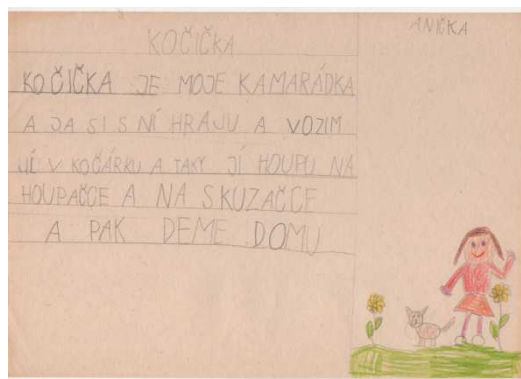 ANIČKA
KOČIČKA
KOČIČKA JE MOJE KAMARÁDKA
A JA SI S NÍ HRAJU A VOZIM
JÍ V KOČÁRKU A TAKY JÍ HOUPU NA
HOUPAČCE A NA SKUZAČCE
A PAK DEME DOMU